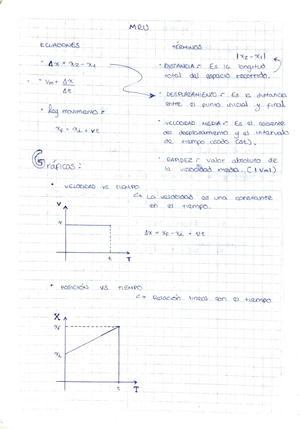 MRU
ECUACIONES
• Δx = x2 - x1
• Vm = Δx
Δt
• Ley movimiento:
xf = xi + vt
TÉRMINOS
|x2 - x1|
• DISTANCIA: Es la longitud
total del espacio recorrido.
• DESPLAZAMIENTO: Es la distancia
entre el punto inicial y final
• VELOCIDAD MEDIA: Es el cociente
del desplazamiento y el intervalo
de tiempo usado (Δt).
• RAPIDEZ: valor absoluto de
la velocidad media. (|Vm|)
Gráficas:
• VELOCIDAD VS TIEMPO
La velocidad es una constante
en el tiempo.
V
v
t
T
Δx = xf - xi = vt
• POSICIÓN VS. TIEMPO
Relación lineal con el tiempo
X
xf
xi
t
T